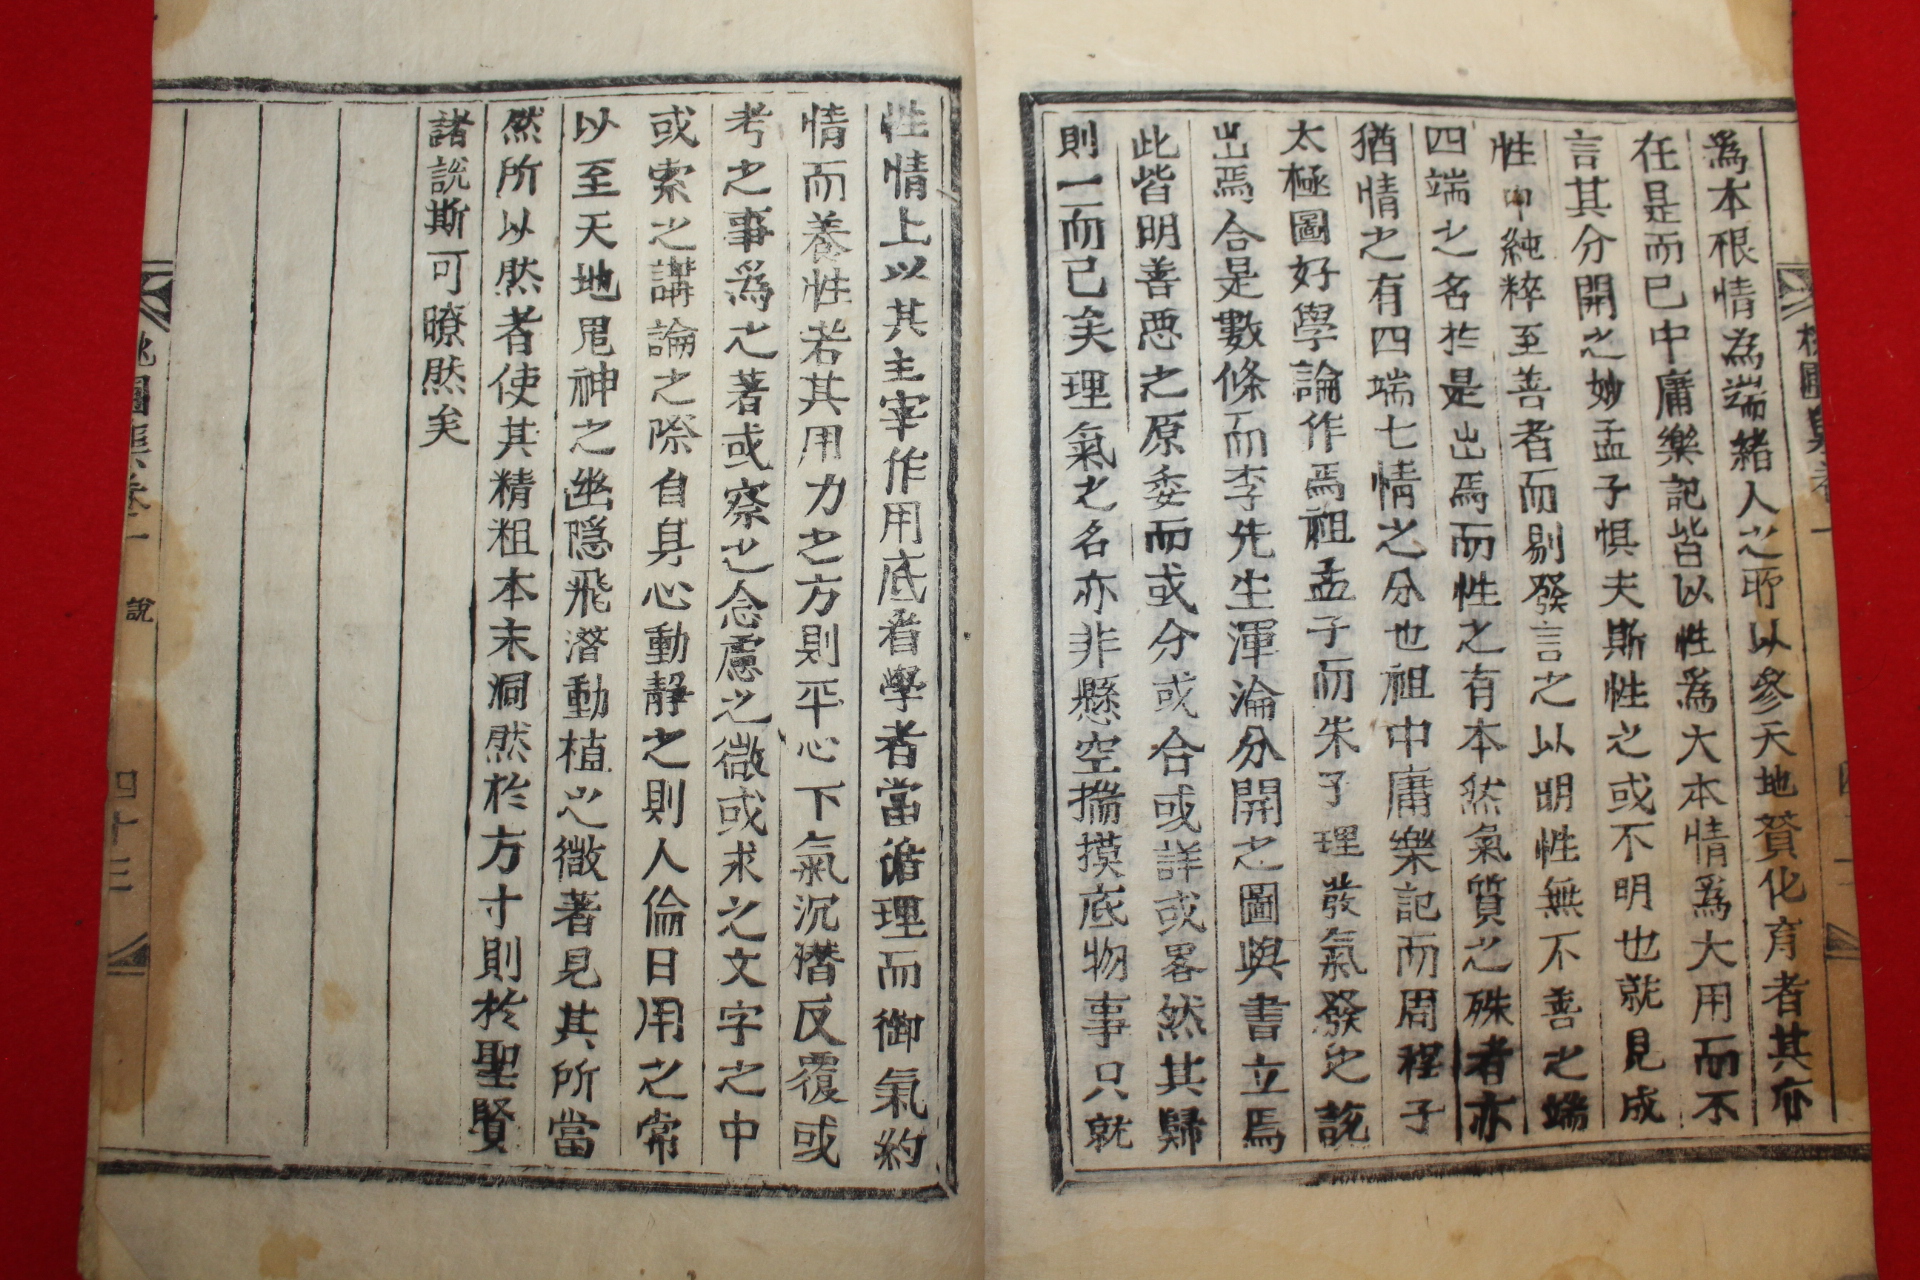 為本根情為端緒人之所以參天地贊化育者其亦
在是而已中庸樂記皆以性為大本情爲大用而不
言其分開之妙孟子惧夫斯性之或不明也就見成
性中純粹至善者而剔發言之以明性無不善之端
四端之名於是出焉而性之有本然氣質之殊者亦
猶情之有四端七情之分也祖中庸樂記而周程子
太極圖好學論作焉祖孟子而朱子理發氣發之說
出焉合是數條而李先生渾淪分開之圖與書立焉
此皆明善惡之原委而或分或合或詳或畧然其歸
則一而已矣理氣之名亦非懸空揣摸底物事只就
性情上以其主宰作用底者學者當循理而御氣約
情而養性若其用力之方則平心下氣沉潛反覆或
考之事爲之著或察之念慮之微或求之文字之中
或索之講論之際自身心動靜之則人倫日用之常
以至天地鬼神之幽隱飛潛動植之微著見其所當
然所以然者使其精粗本末洞然於方寸則於聖賢
諸說斯可瞭然矣
說
四十三